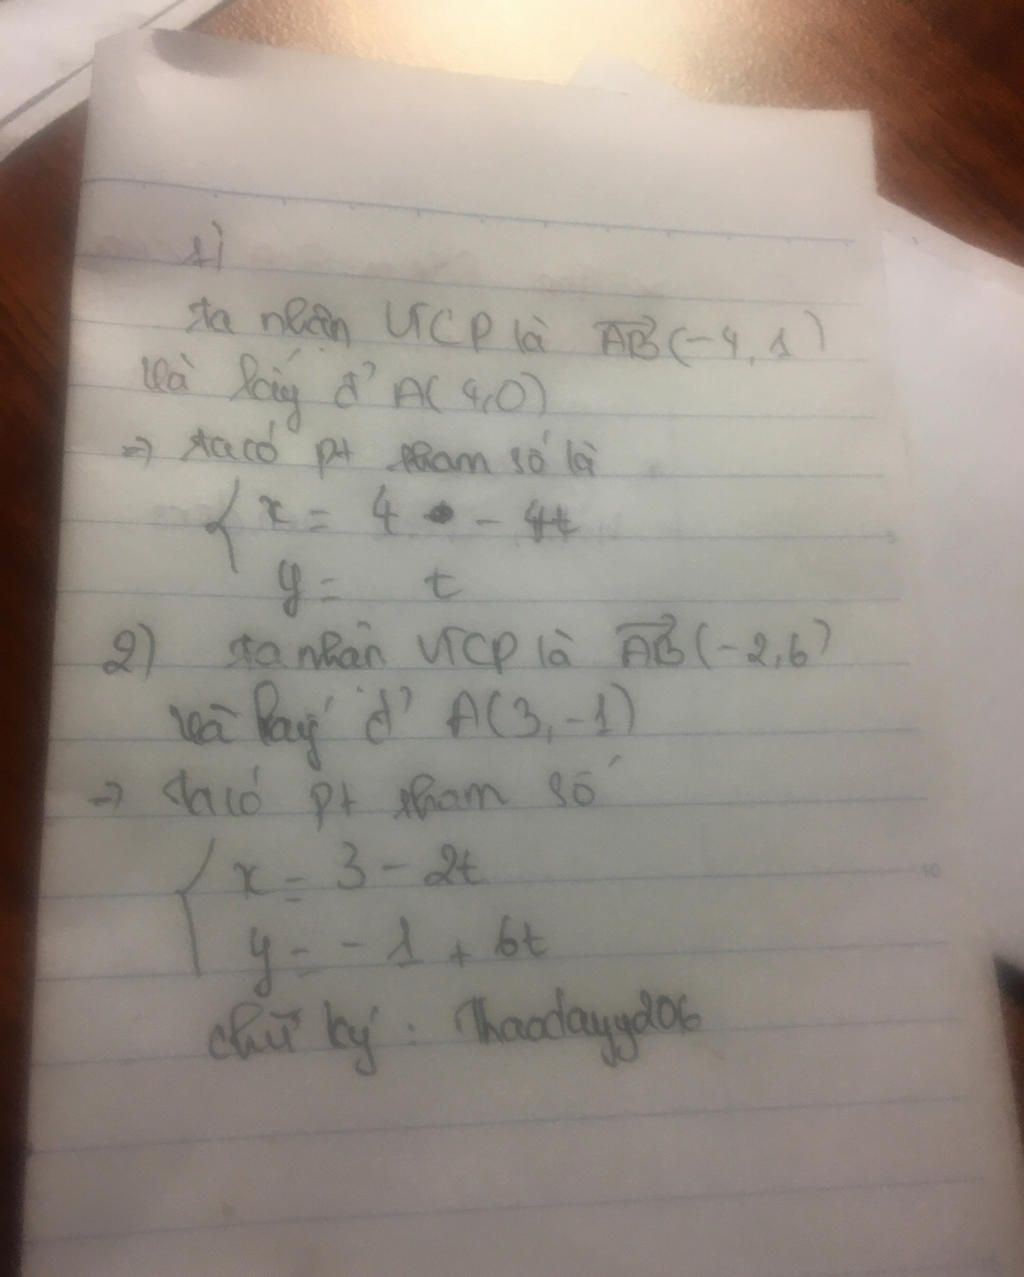 1)
ta nhân VTCP là AB⃗(-4,1)
và lấy đ' A(4,0)
=> ta có pt tham số là
{ x = 4 - 4t
y = t
2) ta nhân VTCP là AB⃗(-2,6)
và lấy đ' A(3,-1)
=> ta có pt tham số
{ x = 3 - 2t
y = -1 + 6t
chữ ký : Thaodayyy206